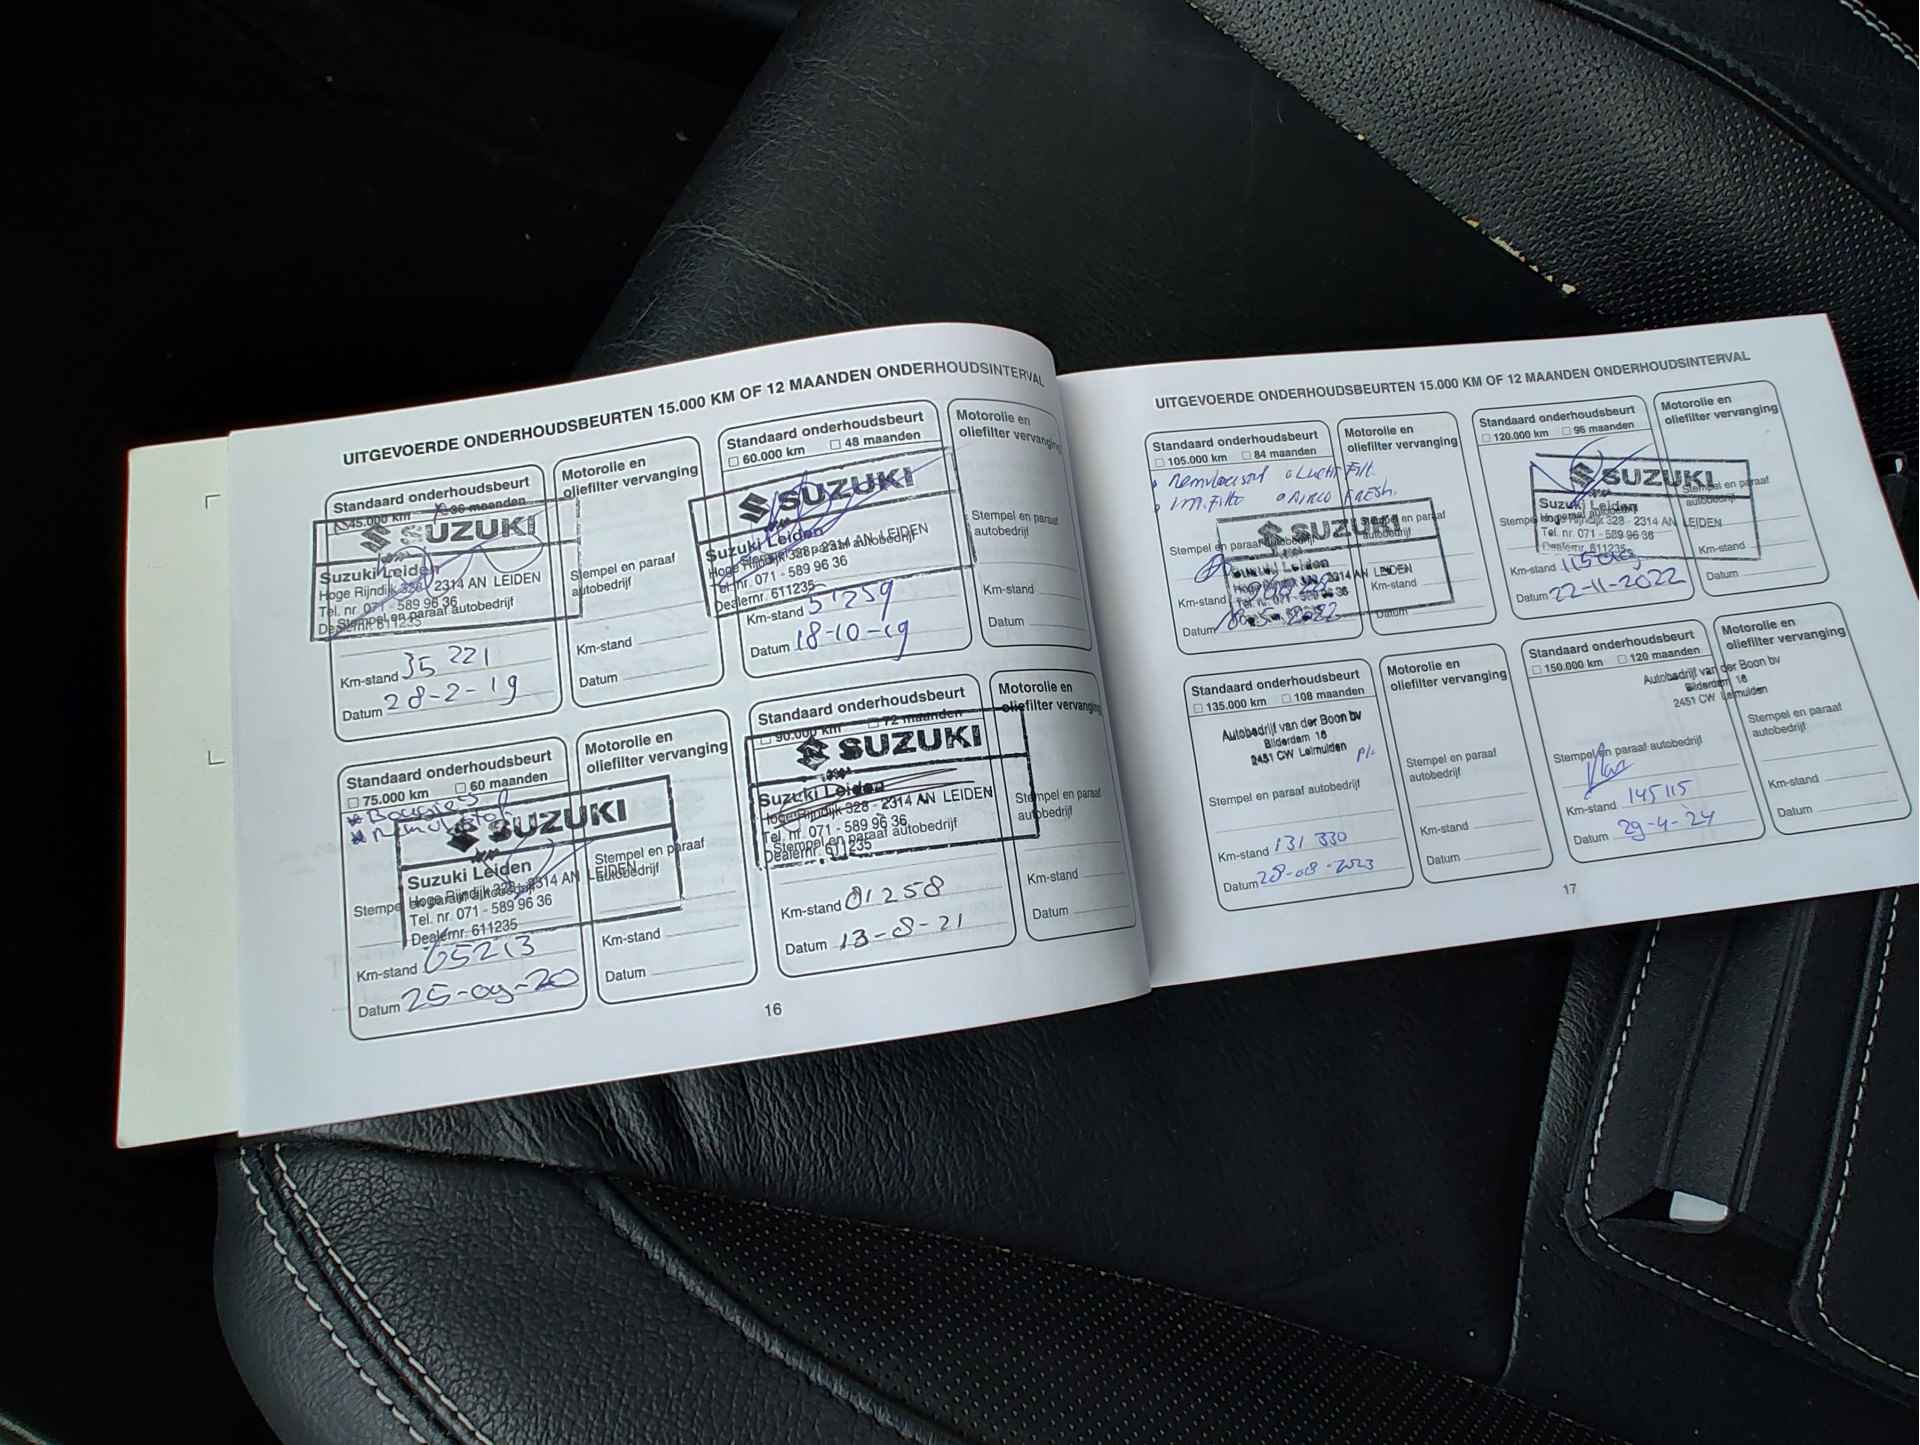 UITGEVOERDE ONDERHOUDSBEURTEN 15.000 KM OF 12 MAANDEN ONDERHOUDSINTERVAL
Standaard onderhoudsbeurt
45.000 km 36 maanden
SUZUKI
Suzuki Leiden
Hoge Rijndijk 328 - 2314 AN LEIDEN
Tel. nr. 071 - 589 96 36
Stempel en paraaf autobedrijf
Dealernr. 611235
Km-stand 35221
Datum 28-2-19
Motorolie en
oliefilter vervanging
Stempel en paraaf
autobedrijf
Km-stand
Datum
Standaard onderhoudsbeurt
60.000 km 48 maanden
SUZUKI
Suzuki Leiden
Hoge Rijndijk 328 - 2314 AN LEIDEN
Stempel en paraaf autobedrijf
Tel. nr. 071 - 589 96 36
Dealernr. 611235
Km-stand 51259
Datum 18-10-19
Motorolie en
oliefilter vervanging
Stempel en paraaf
autobedrijf
Km-stand
Datum
Standaard onderhoudsbeurt
75.000 km 60 maanden
SUZUKI
Suzuki Leiden
Hoge Rijndijk 328 - 2314 AN LEIDEN
Stempel en paraaf autobedrijf
Tel. nr. 071 - 589 96 36
Dealernr. 611235
Km-stand 65213
Datum 25-09-20
Motorolie en
oliefilter vervanging
Stempel en paraaf
autobedrijf
Km-stand
Datum
Standaard onderhoudsbeurt
90.000 km 72 maanden
SUZUKI
Suzuki Leiden
Hoge Rijndijk 328 - 2314 AN LEIDEN
Tel. nr. 071 - 589 96 36
Stempel en paraaf autobedrijf
Dealernr. 611235
Km-stand 81258
Datum 13-8-21
Motorolie en
oliefilter vervanging
Stempel en paraaf
autobedrijf
Km-stand
Datum
16
UITGEVOERDE ONDERHOUDSBEURTEN 15.000 KM OF 12 MAANDEN ONDERHOUDSINTERVAL
Standaard onderhoudsbeurt
105.000 km 84 maanden
Remvloeistof Lucht Filt.
Int. Filte Airco Fresh.
SUZUKI
Stempel en paraaf autobedrijf
Suzuki Leiden
2314 AN LEIDEN
Km-stand
Datum
Motorolie en
oliefilter vervanging
Stempel en paraaf
autobedrijf
Km-stand
Datum
Standaard onderhoudsbeurt
120.000 km 96 maanden
SUZUKI
Suzuki Leiden
Hoge Rijndijk 328 - 2314 AN LEIDEN
Tel. nr. 071 - 589 96 36
Dealernr. 611235
Km-stand
Datum 22-11-2022
Motorolie en
oliefilter vervanging
Stempel en paraaf
autobedrijf
Km-stand
Datum
Standaard onderhoudsbeurt
135.000 km 108 maanden
Autobedrijf van der Boon bv
Bilderdam 16
2451 CW Leimuiden
Stempel en paraaf autobedrijf
Km-stand 131 330
Datum 28-08-2023
Motorolie en
oliefilter vervanging
Stempel en paraaf
autobedrijf
Km-stand
Datum
Standaard onderhoudsbeurt
150.000 km 120 maanden
Autobedrijf van der Boon bv
Bilderdam 16
2451 CW Leimuiden
Stempel en paraaf autobedrijf
Km-stand 145115
Datum 29-4-24
Motorolie en
oliefilter vervanging
Stempel en paraaf
autobedrijf
Km-stand
Datum
17